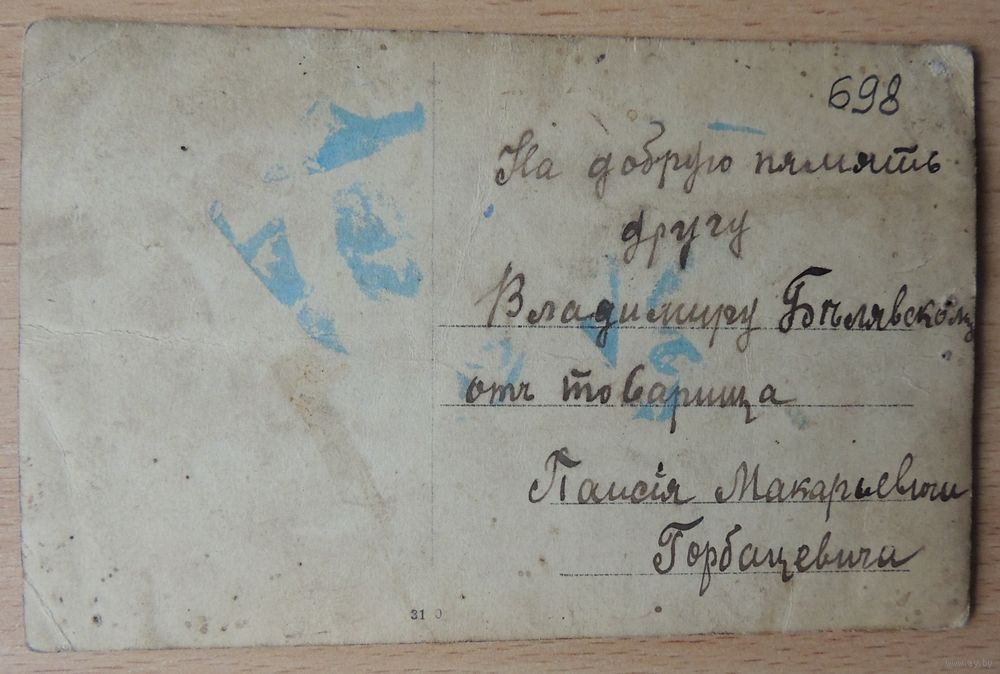 698
На добрую память
другу
Владимиру Бѣлявскому
отъ товарища
Паисія Макарьевича
Горбацевича
31
www.ay.by